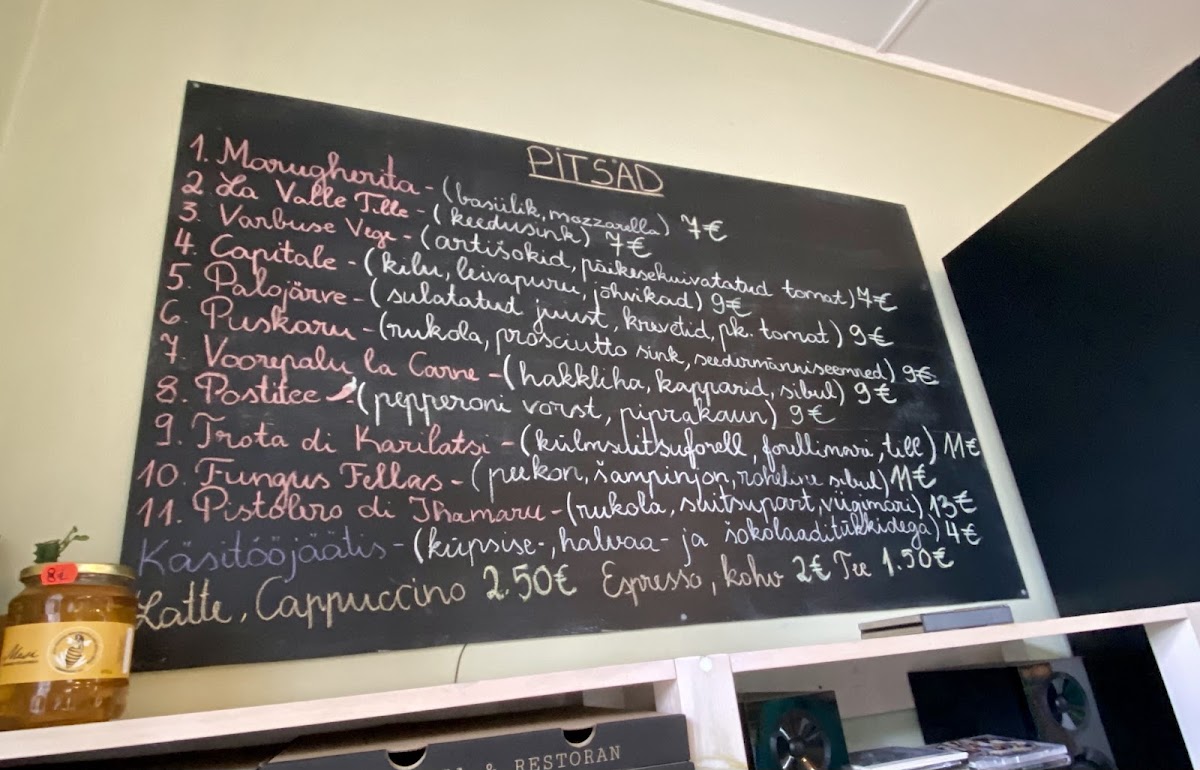 PITSAD
1. Marugherita - (basiilik, mozzarella) 7€
2 La Valle Tille - (keedusink) 7€
3. Varbuse Vege - (artišokid, päikesekuivatatud tomat) 7€
4. Capitale - (kilu, leivapuru, jõhvikad) 9€
5. Palojärve - (sulatatud juust, krevetid, pk. tomat) 9€
6. Puskaru - (rukola, prosciutto sink, seedermänniseemned) 9€
7. Voorepalu la Carne - (hakkliha, kapparid, sibul) 9€
8. Postitee (pepperoni vorst, piprakaun) 9€
9. Trota di Karilatsi - (külmsuitsuforell, forellimari, till) 11€
10. Fungus Fellas - (peekon, šampinjon, roheline sibul) 11€
11. Pistolero di Ihamaru - (rukola, suitsupart, viigimari) 13€
Käsitööjäätis - (küpsise-, halvaa- ja šokolaaditükkidega) 4€
Latte, Cappuccino 2.50€ Espresso, kohv 2€ Tee 1.50€
8€
& RESTORAN